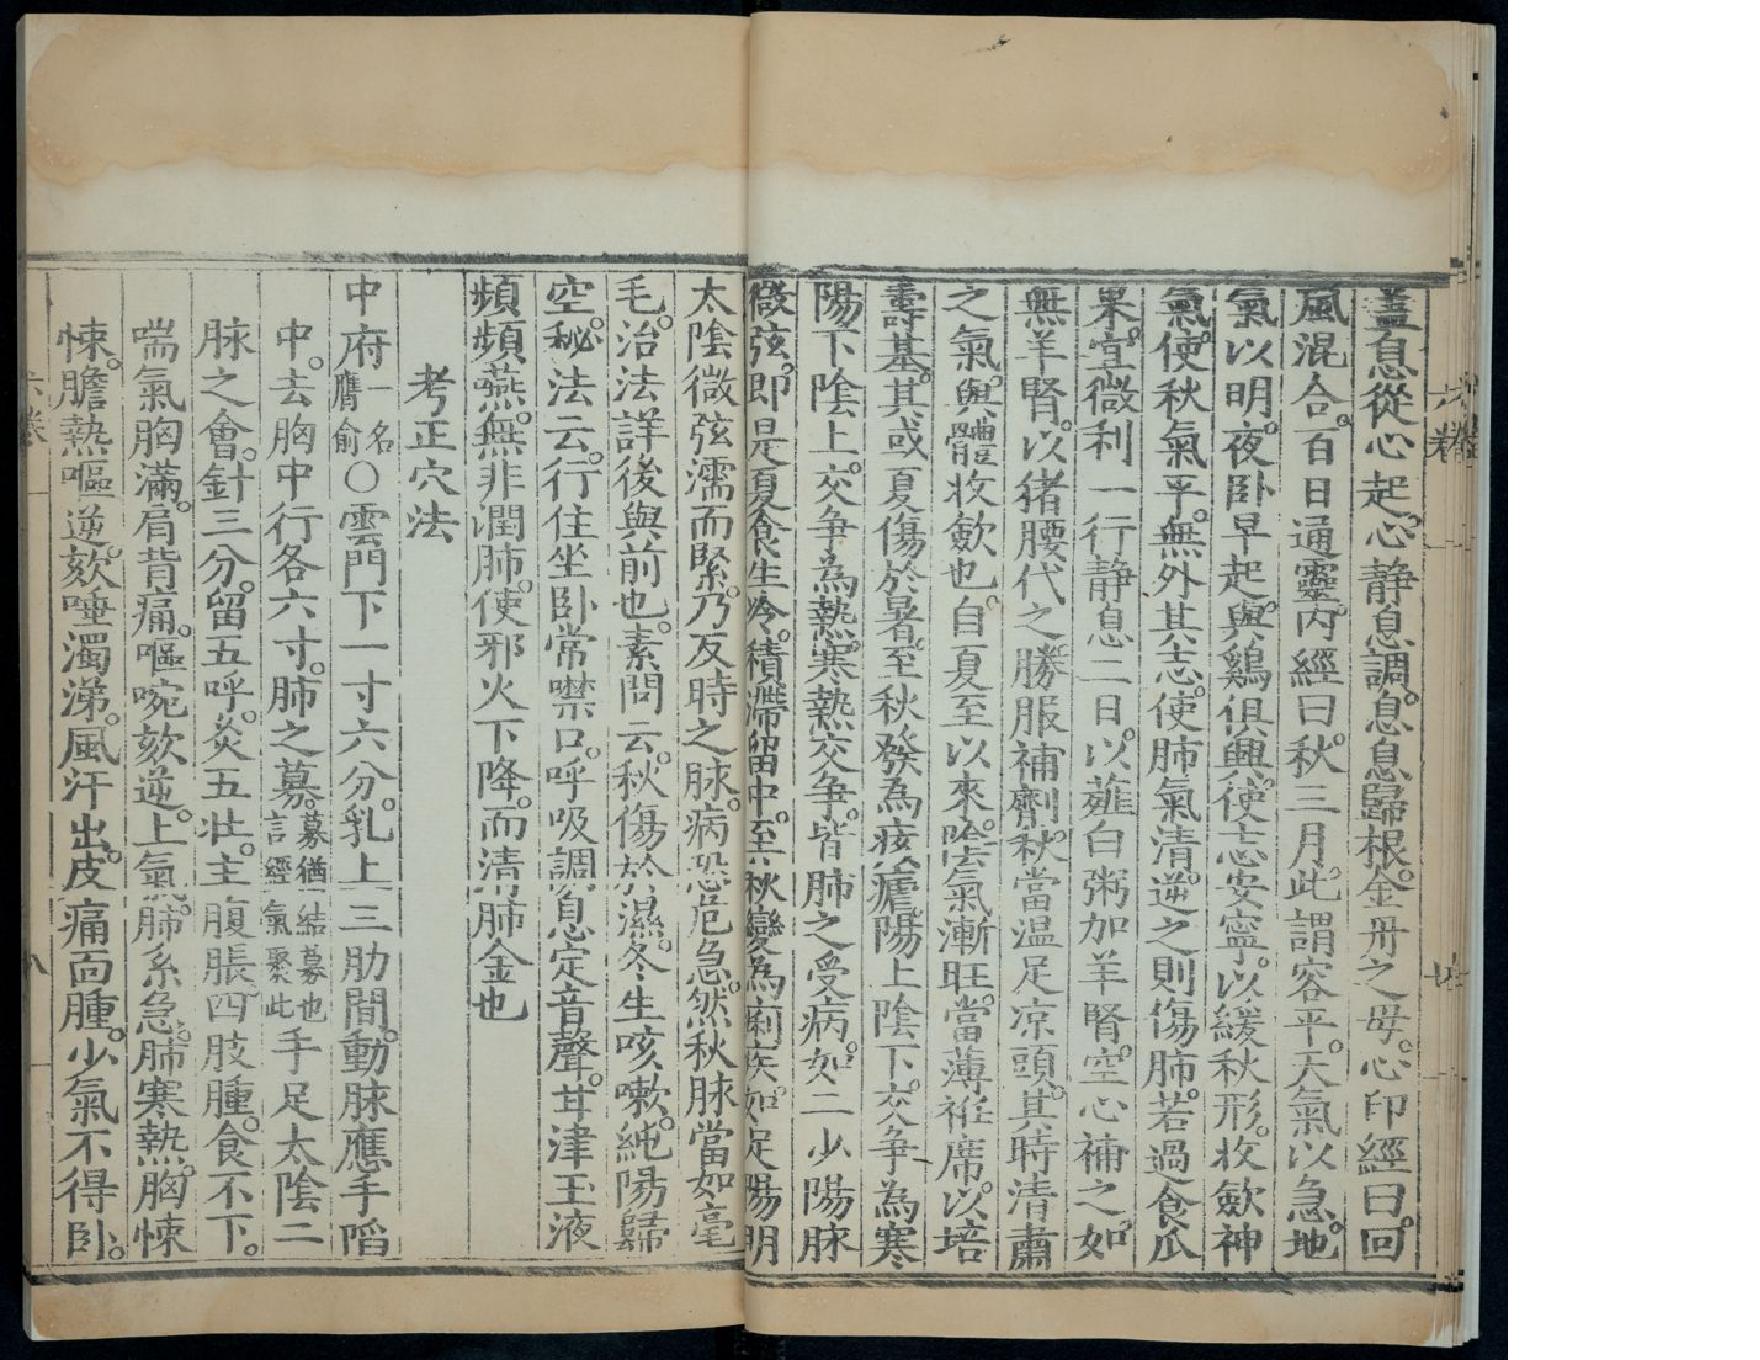 蓋息從心起。心静息調。息息歸根。金丹之母。心印經曰。回
風混合。百日通靈。内經曰。秋三月。此謂容平。天氣以急。地
氣以明。夜卧早起。與鷄俱興。使志安寧。以緩秋形。收斂神
氣。使秋氣平。無外其志。使肺氣清。逆之則傷肺。若過食瓜
果。宜微利一行。静息二日。以薤白粥加羊腎。空心補之。如
無羊腎。以猪腰代之。勝服補劑。秋當温足凉頭。其時清肅
之氣。與體收斂也。自夏至以來。陰氣漸旺。當薄袵席。以培
壽基。其或夏傷於暑。至秋發為痎瘧。陽上陰下。交争為寒
陽下陰上。交争為熱。寒熱交争。皆肺之受病。如二少陽脉
微弦。即是夏食生冷。積滯留中。至秋變為痢疾。如足陽明
太陰微弦濡而緊。乃反時之脉。病恐危急。然秋脉當如毫
毛。治法詳後與前也。素問云。秋傷於濕。冬生咳嗽。純陽歸
空秘。法云。行住坐卧常噤口。呼吸調息定音聲。甘津玉液
頻頻燕。無非潤肺。使邪火下降。而清肺金也
考正穴法
中府一名膺俞○雲門下一寸六分。乳上三肋間。動脉應手陷
中。去胸中行各六寸。肺之募。募猶結募也言經氣聚此手足太陰二
脉之會。針三分。留五呼。灸五壯。主腹脹四肢腫。食不下。
喘氣胸滿。肩背痛。嘔啘欬逆。上氣。肺系急。肺寒熱。胸悚
悚。膽熱嘔逆。欬唾濁涕。風汗出。皮痛面腫。少氣不得卧。
六卷
八